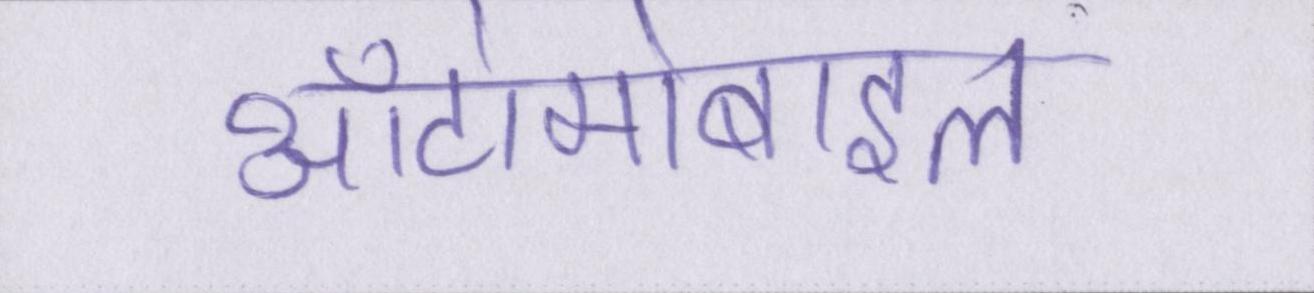 ऑटोमोबाइल